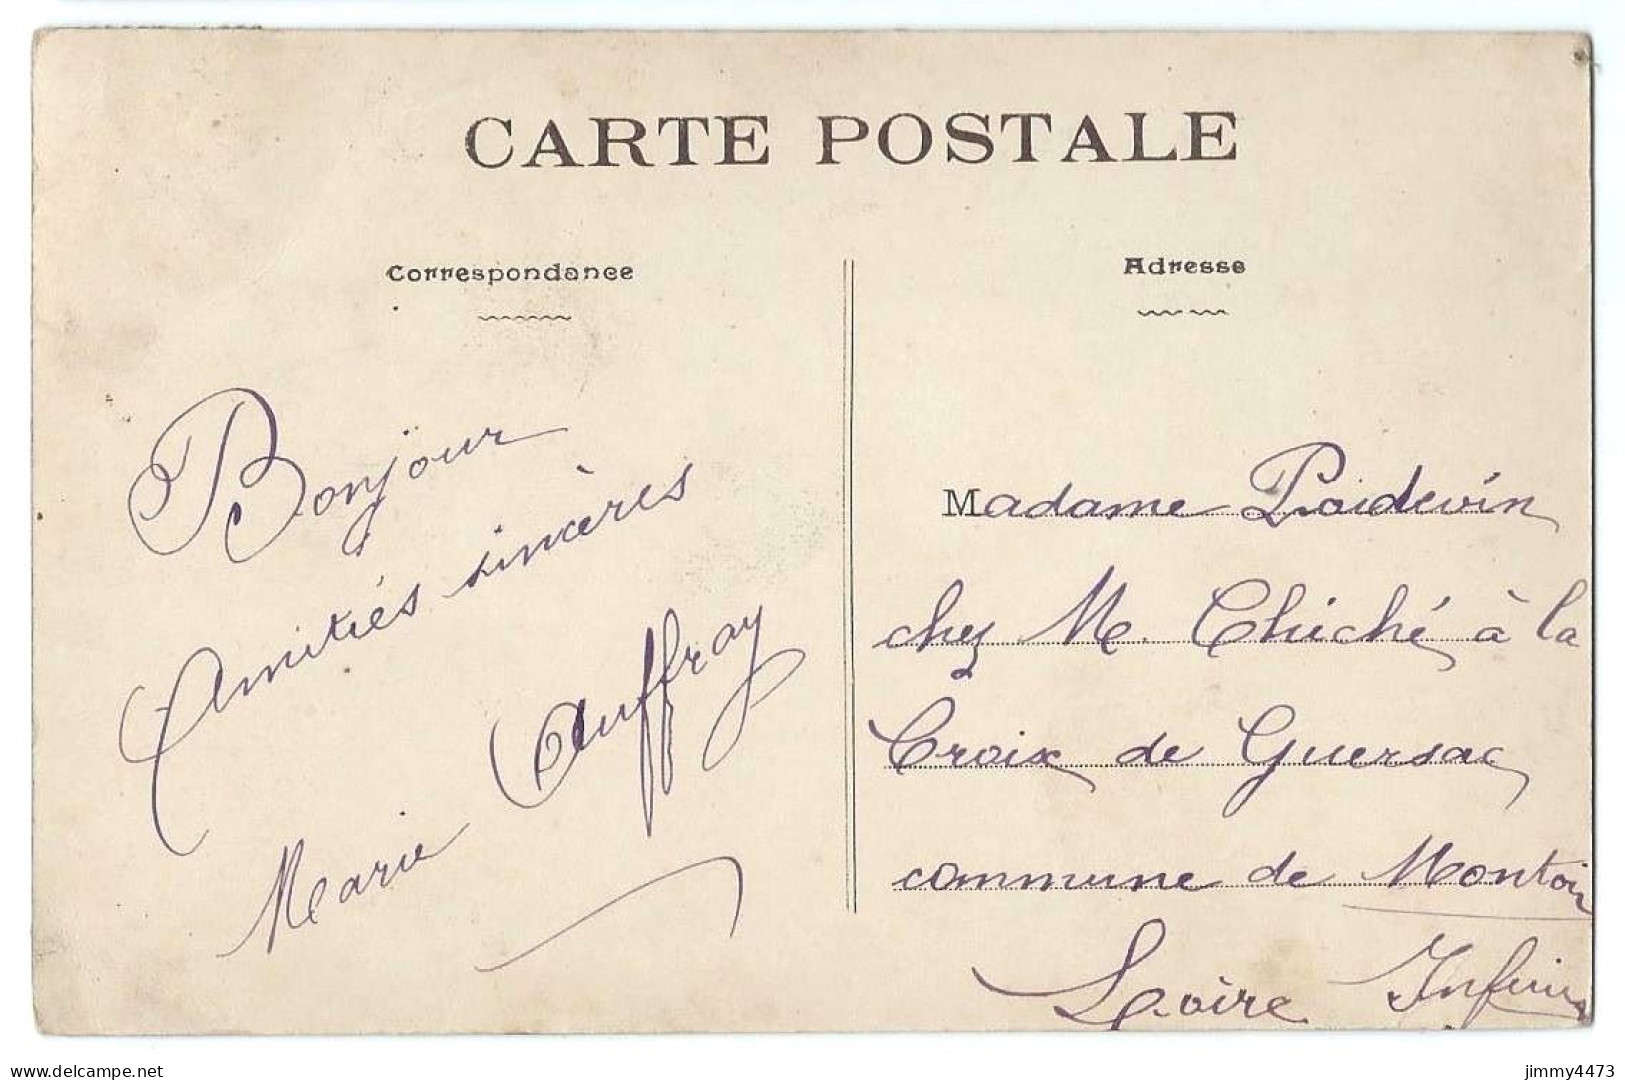 CARTE POSTALE
Correspondance
Adresse
Bonjour
Amitiés sincères
Marie Auffray
Madame Poidevin
chez M. Chiché à la
Croix de Guersac
commune de Montoir
Loire Inférieure
www.delcampe.net
jimmy4473